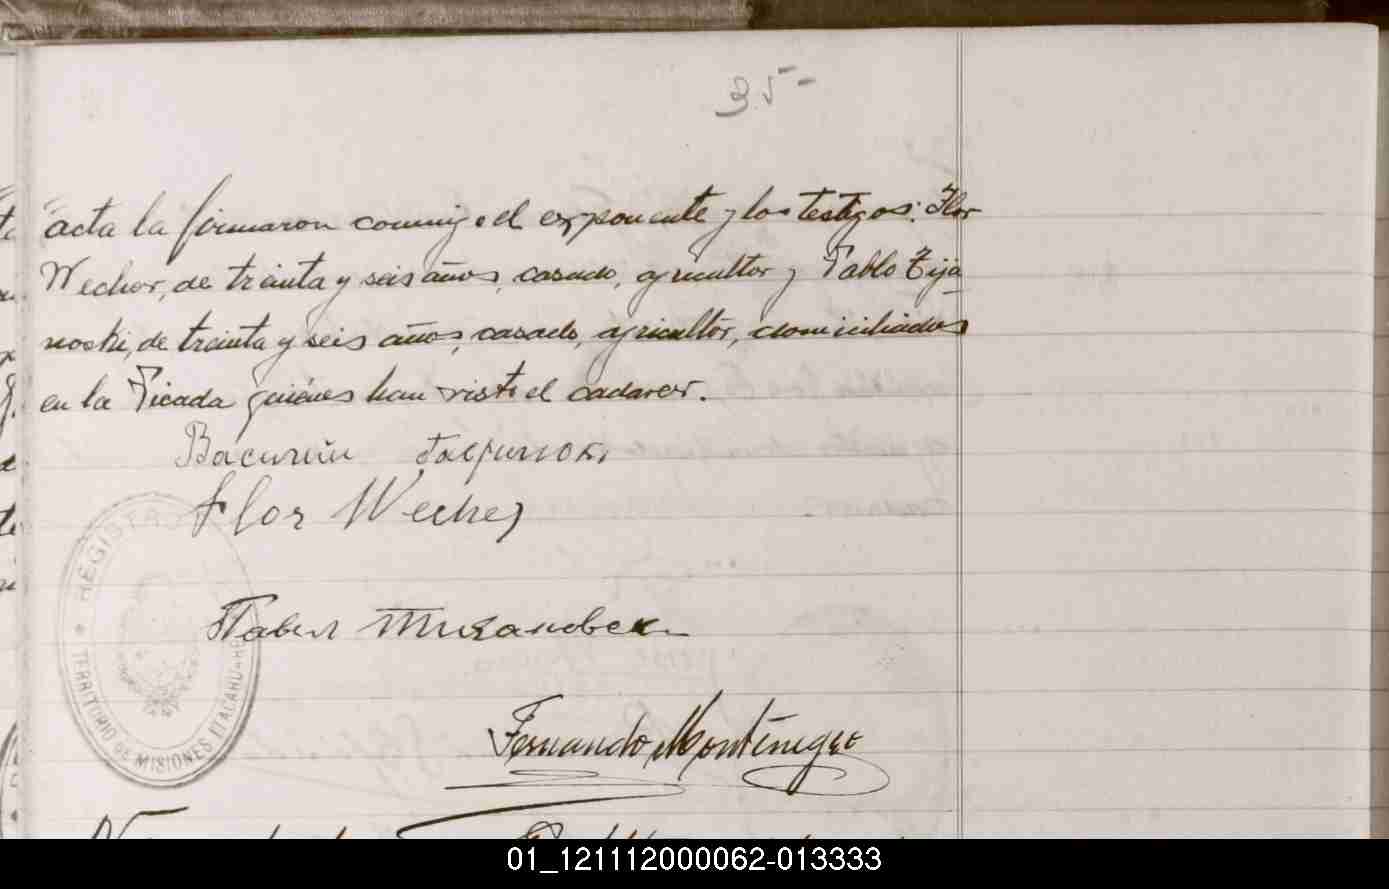 35-
acta la firmaron conmigo el exponente y los testigos: Flor
Wecher, de treinta y seis años, casado, agricultor y Pablo Tija
noski, de treinta y seis años, casado, agricultor, domiciliados
en la Picada quiénes han visto el cadaver.
Flor Wecher
Павел Тихановски
Fernando Montenegro
REGISTRO
TERRITORIO DE MISIONES ITACARUARE
01_121112000062-013333